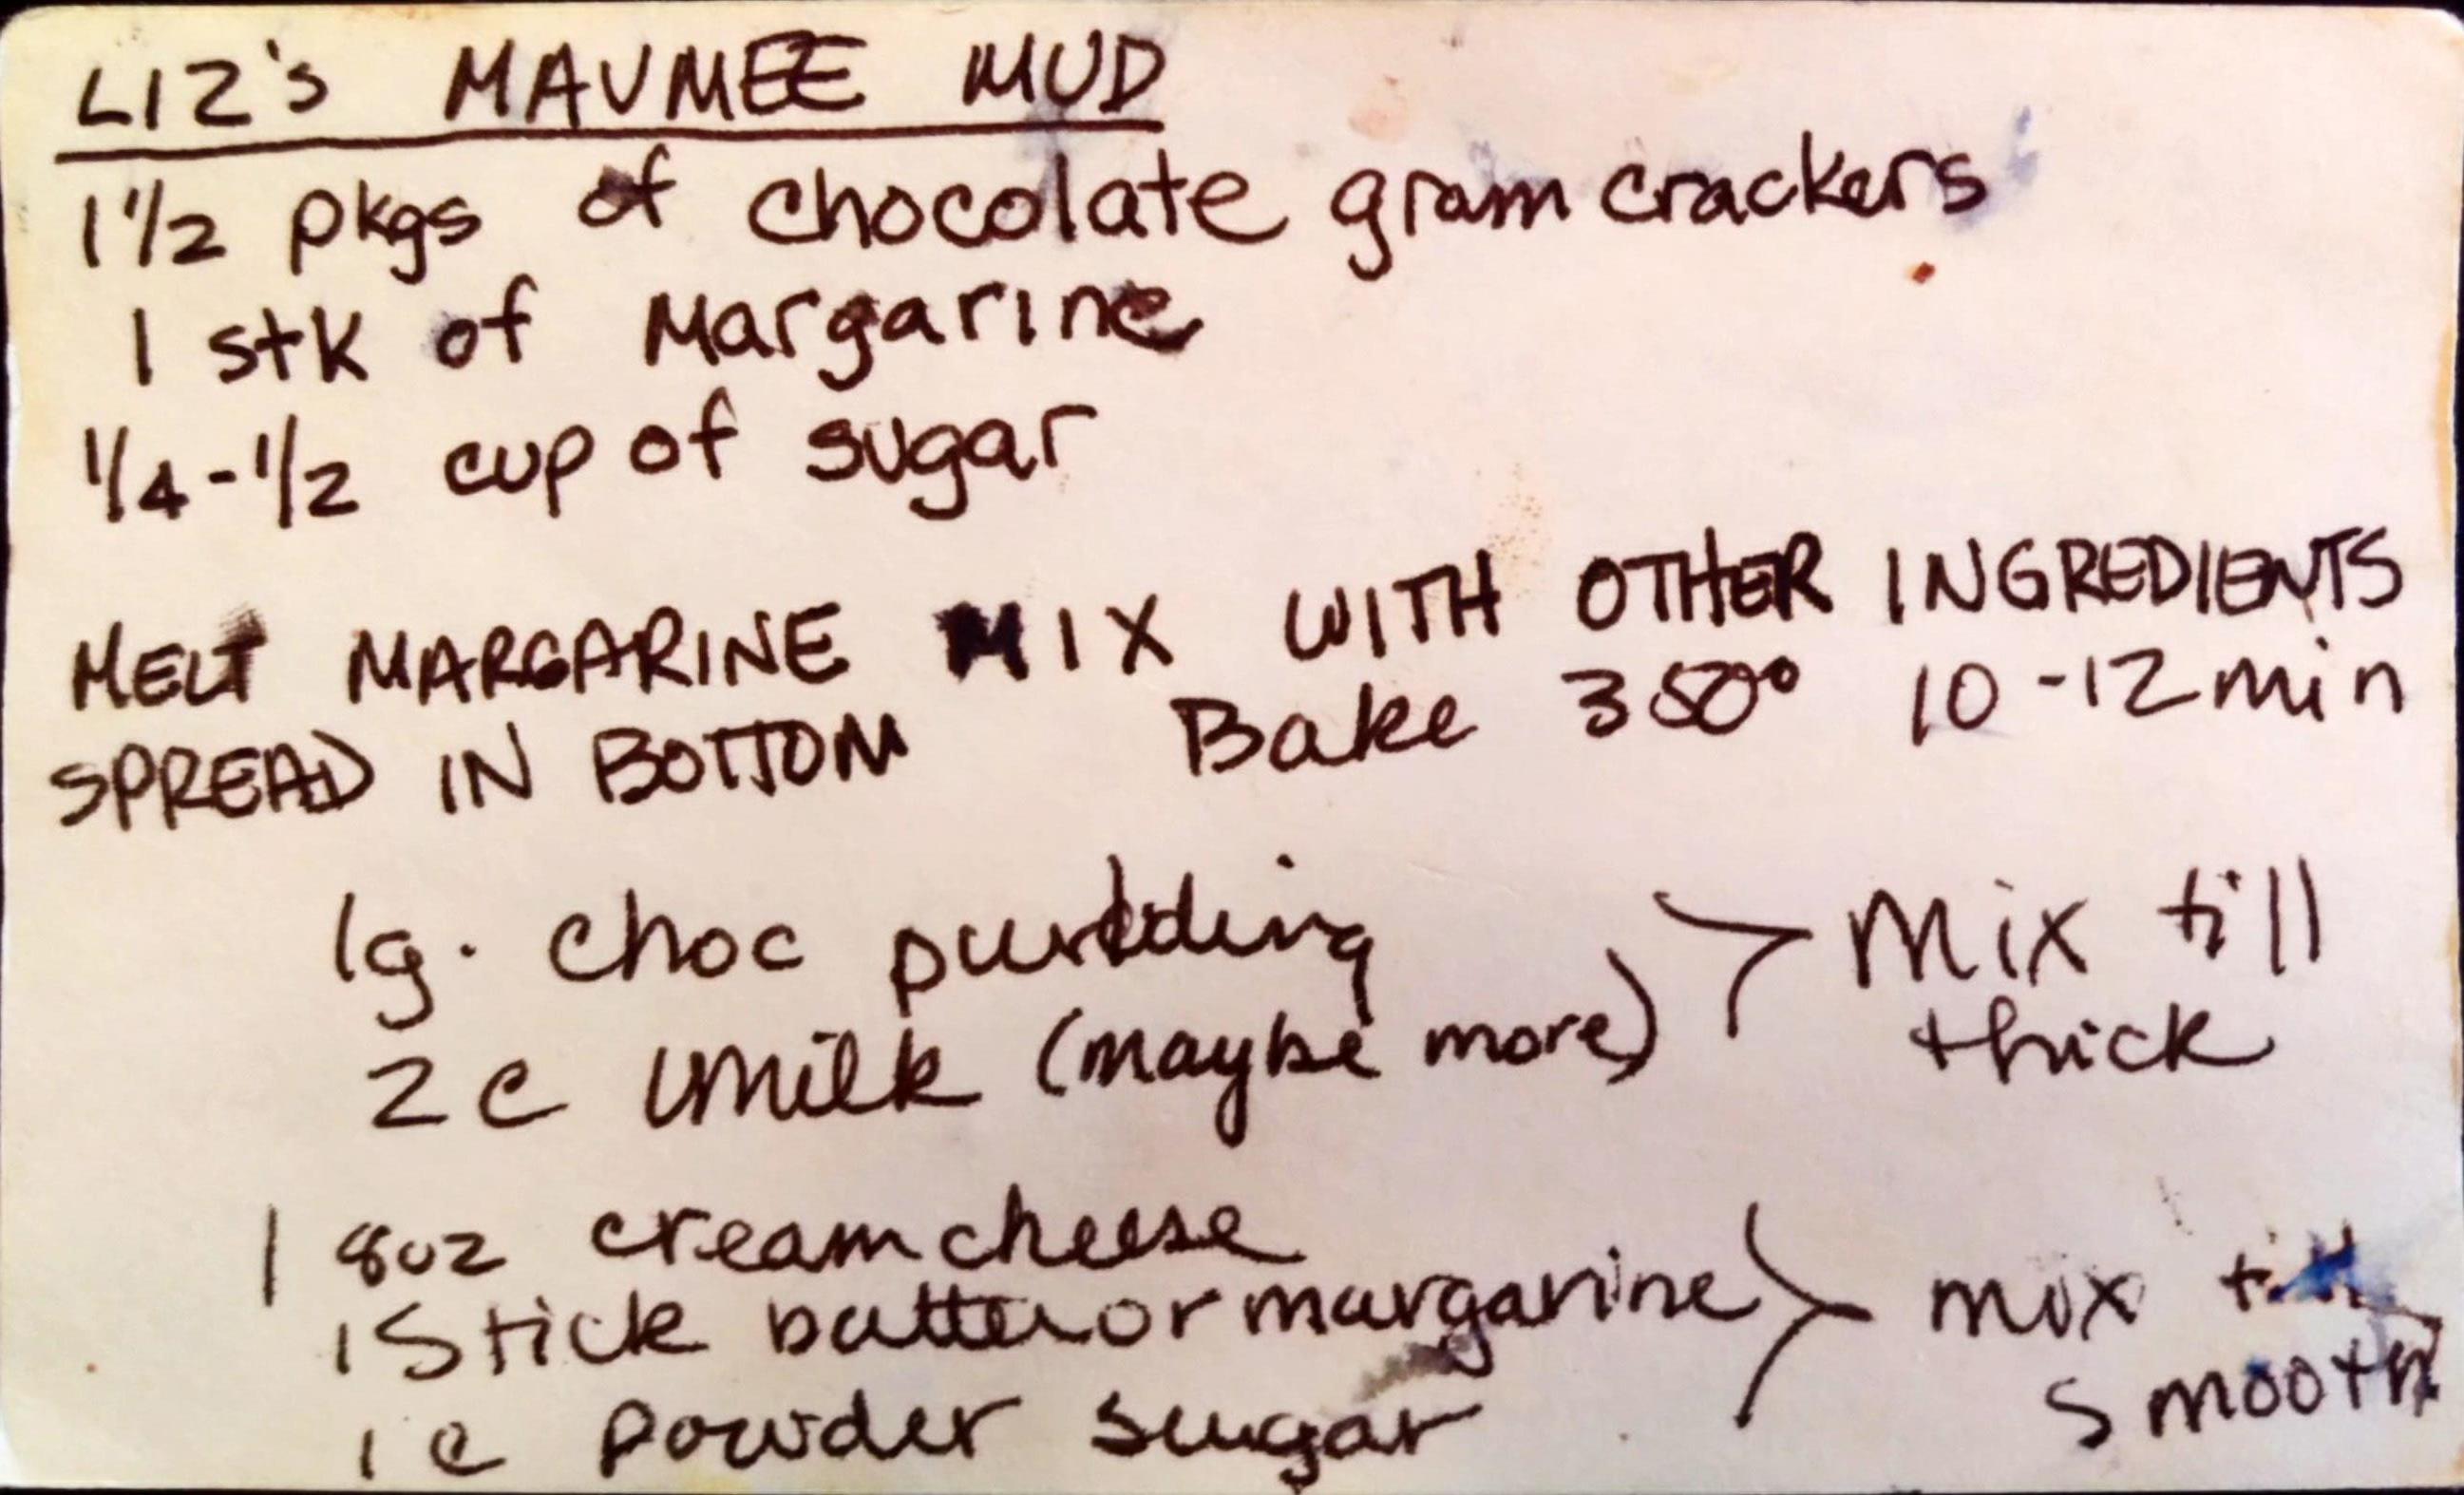 LIZ's MAUMEE MUD
1 1/2 pkgs of chocolate gram crackers
1 stk of Margarine
1/4-1/2 cup of sugar
MELT MARGARINE MIX WITH OTHER INGREDIENTS
SPREAD IN BOTTOM Bake 350° 10-12 min
lg. choc pudding
2 c milk (maybe more) > Mix till thick
1 8oz cream cheese
1 Stick butter or margarine > mix till smooth
1 c powder sugar